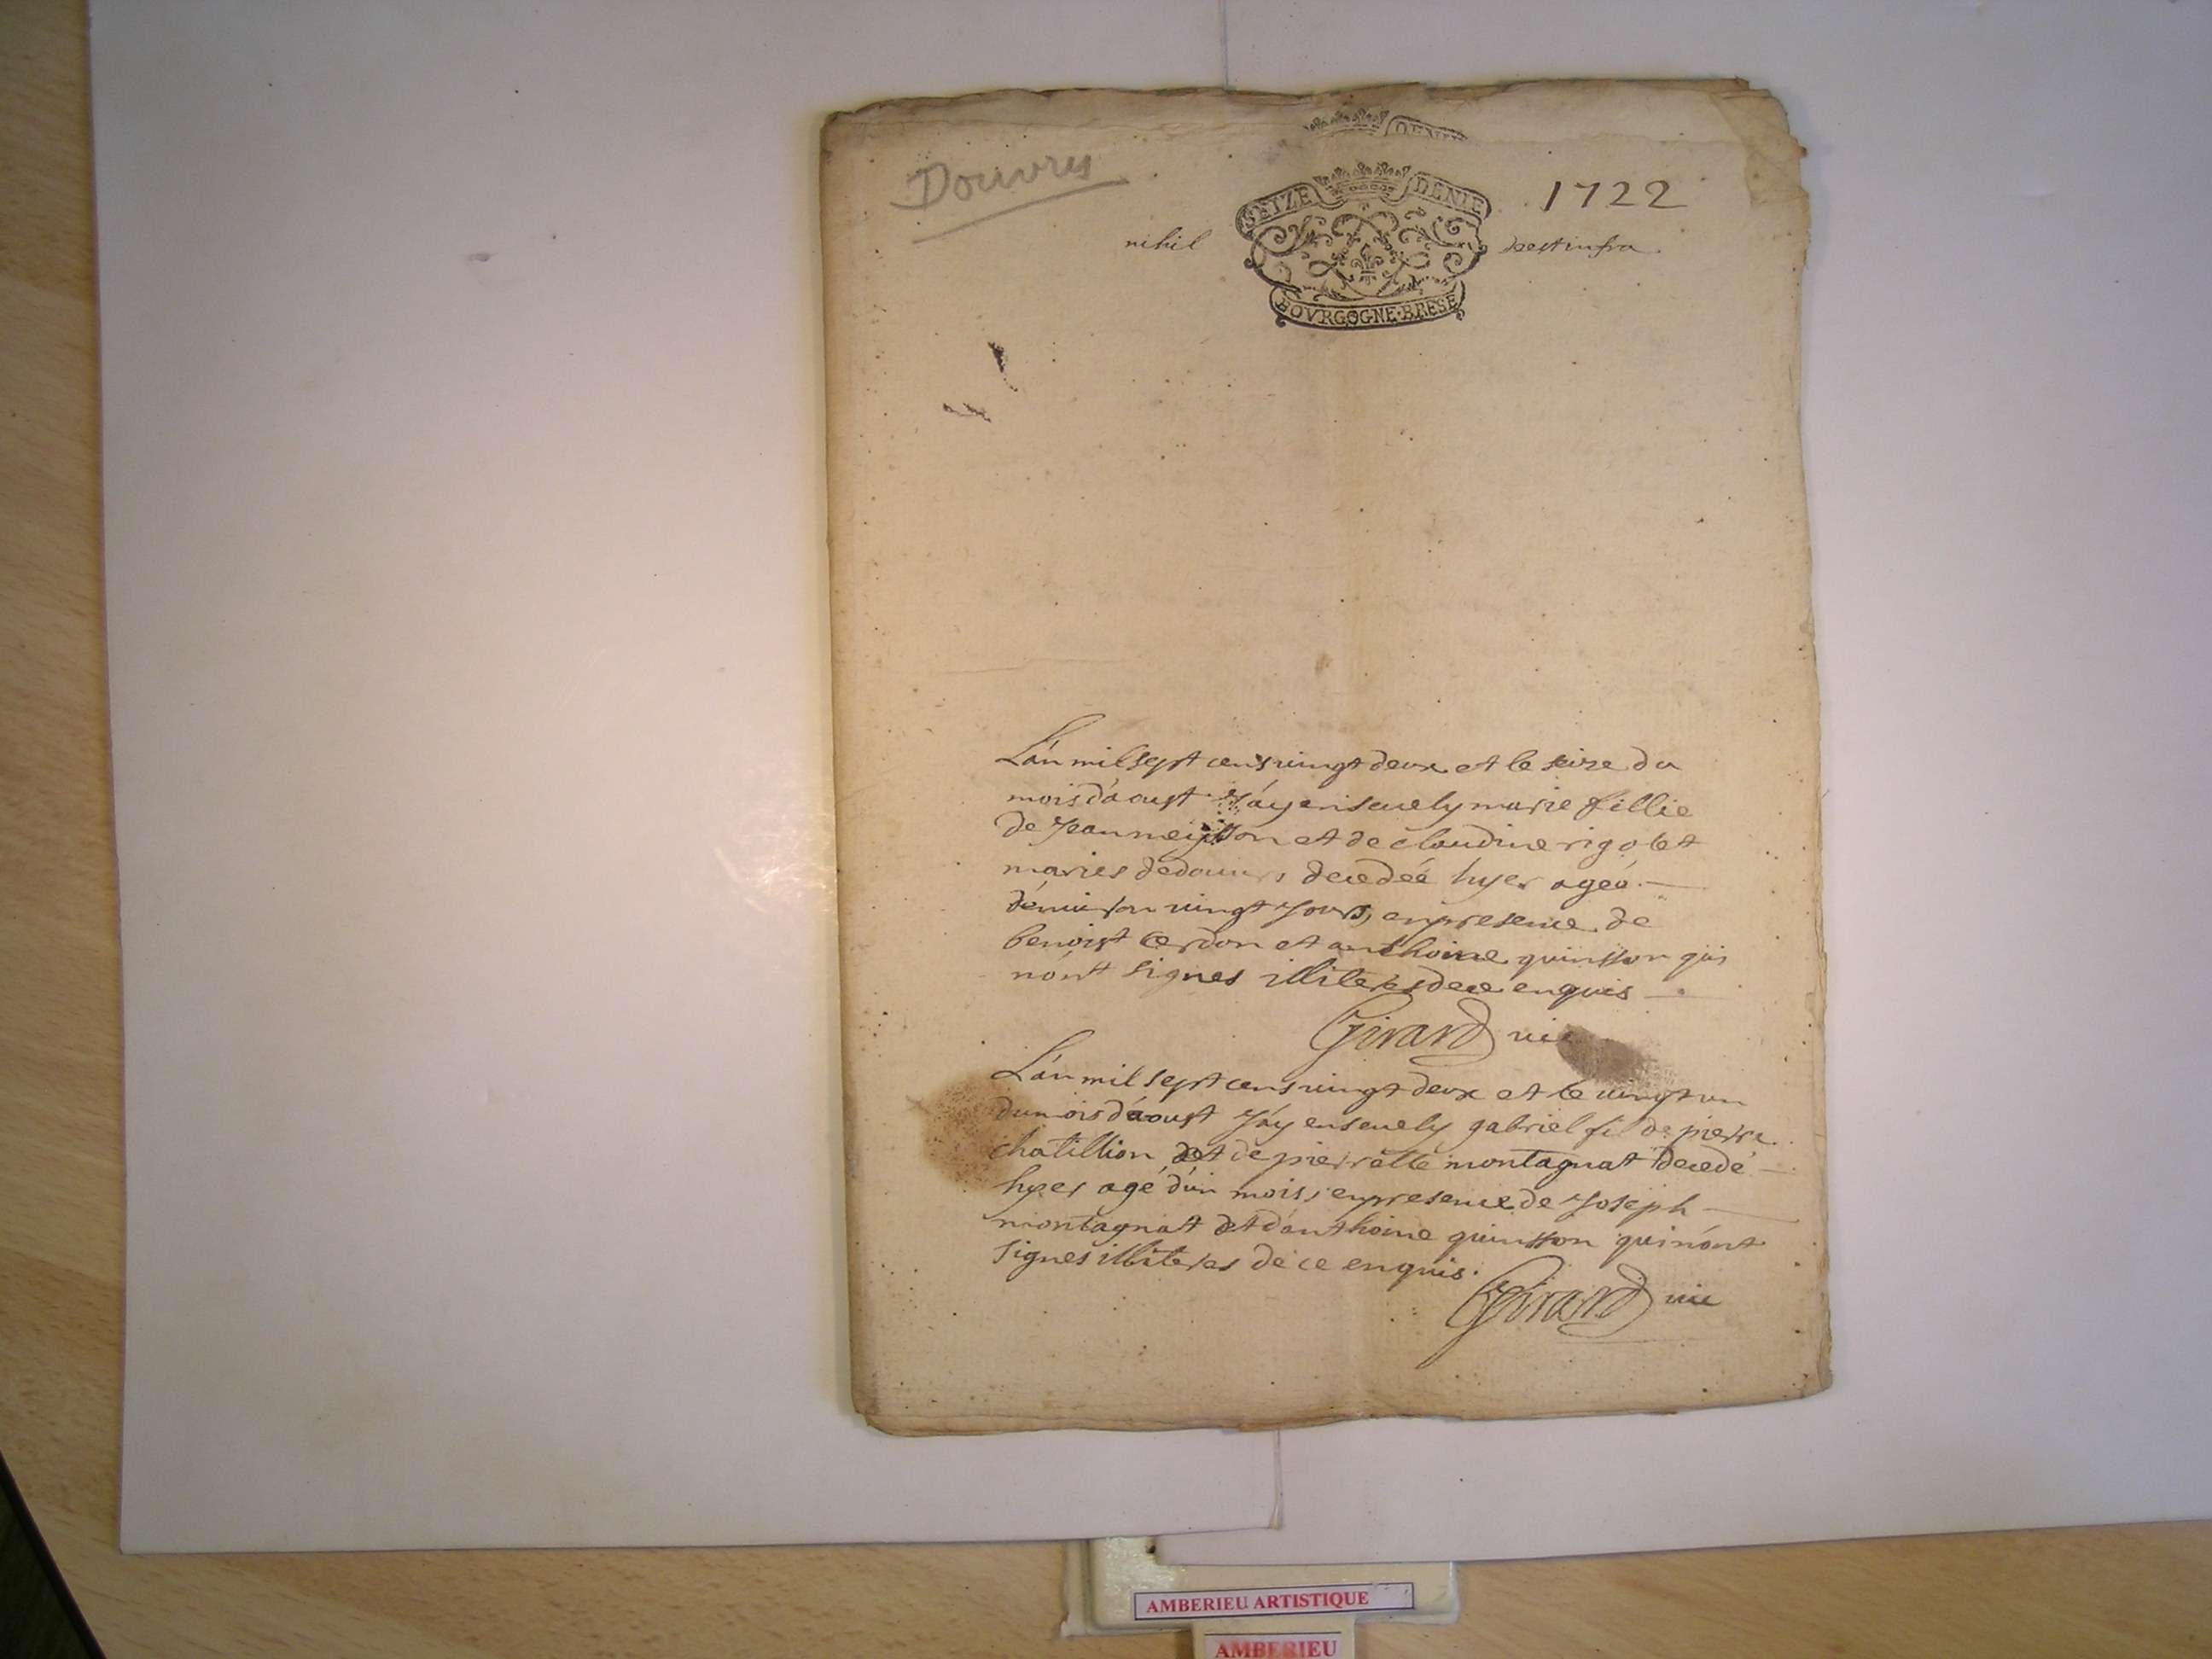 Douvres
SEIZE DENIE
1722
nihil deest infra
BOVRGOGNE·BRESE
L'án mil sept cens vingt deux et le seize du
mois d'áoust J'áy ensevely marie fillie
de Jean et de claudine rigolet
maries de decedeé hyer ageé
d'énviron vingt Jours, en presence de
benoist cerdon et anthoine quinsson qui
n'ónt signes illiteres de ce enquis
Girard vic
L'án mil sept cens vingt deux et le vingt un
du mois d'áoust J'áy ensevely gabriel fil de pierre
chatillion et de pierrette montagnat decedé
hyer agé d'ún mois, en presence de Joseph
montagnat et d'ánthoine quinsson qui n'ónt
signes illiteres de ce enquis.
Girard vic
AMBERIEU ARTISTIQUE
AMBERIEU